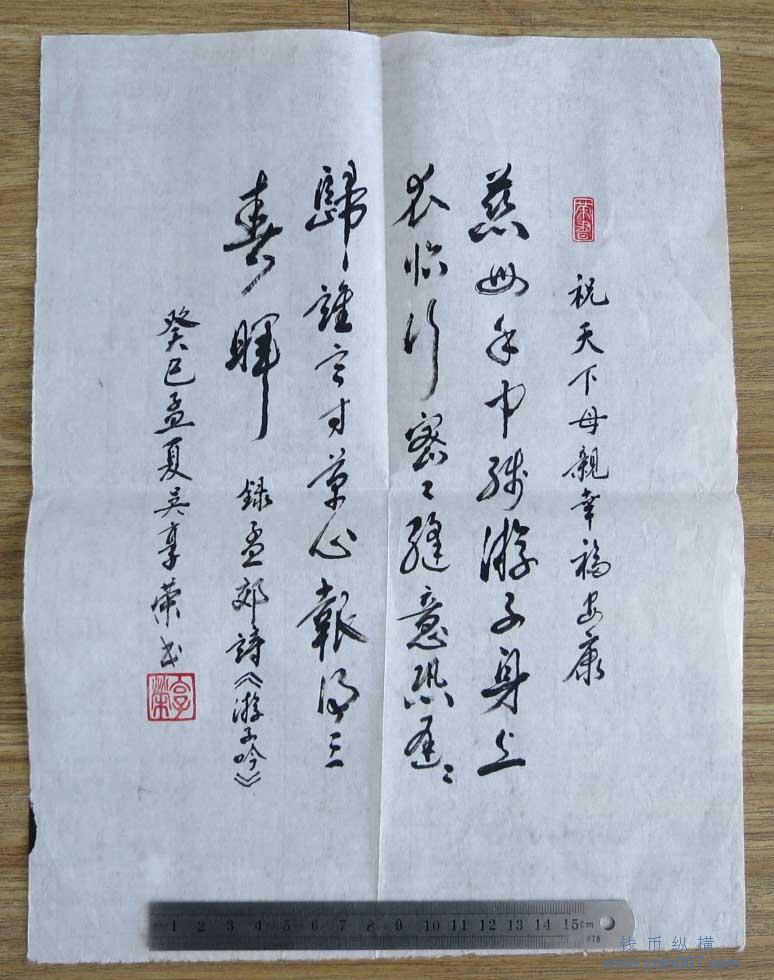 荣書
祝天下母親幸福安康
慈母手中线游子身上
衣临行密〻縫意恐遲〻
歸誰言寸草心報得三
春暉
録孟郊詩《游子吟》
癸巳孟夏吴享荣书
享榮
1 2 3 4 5 6 7 8 9 10 11 12 13 14 15cm
钱币纵横
www.coin007.com